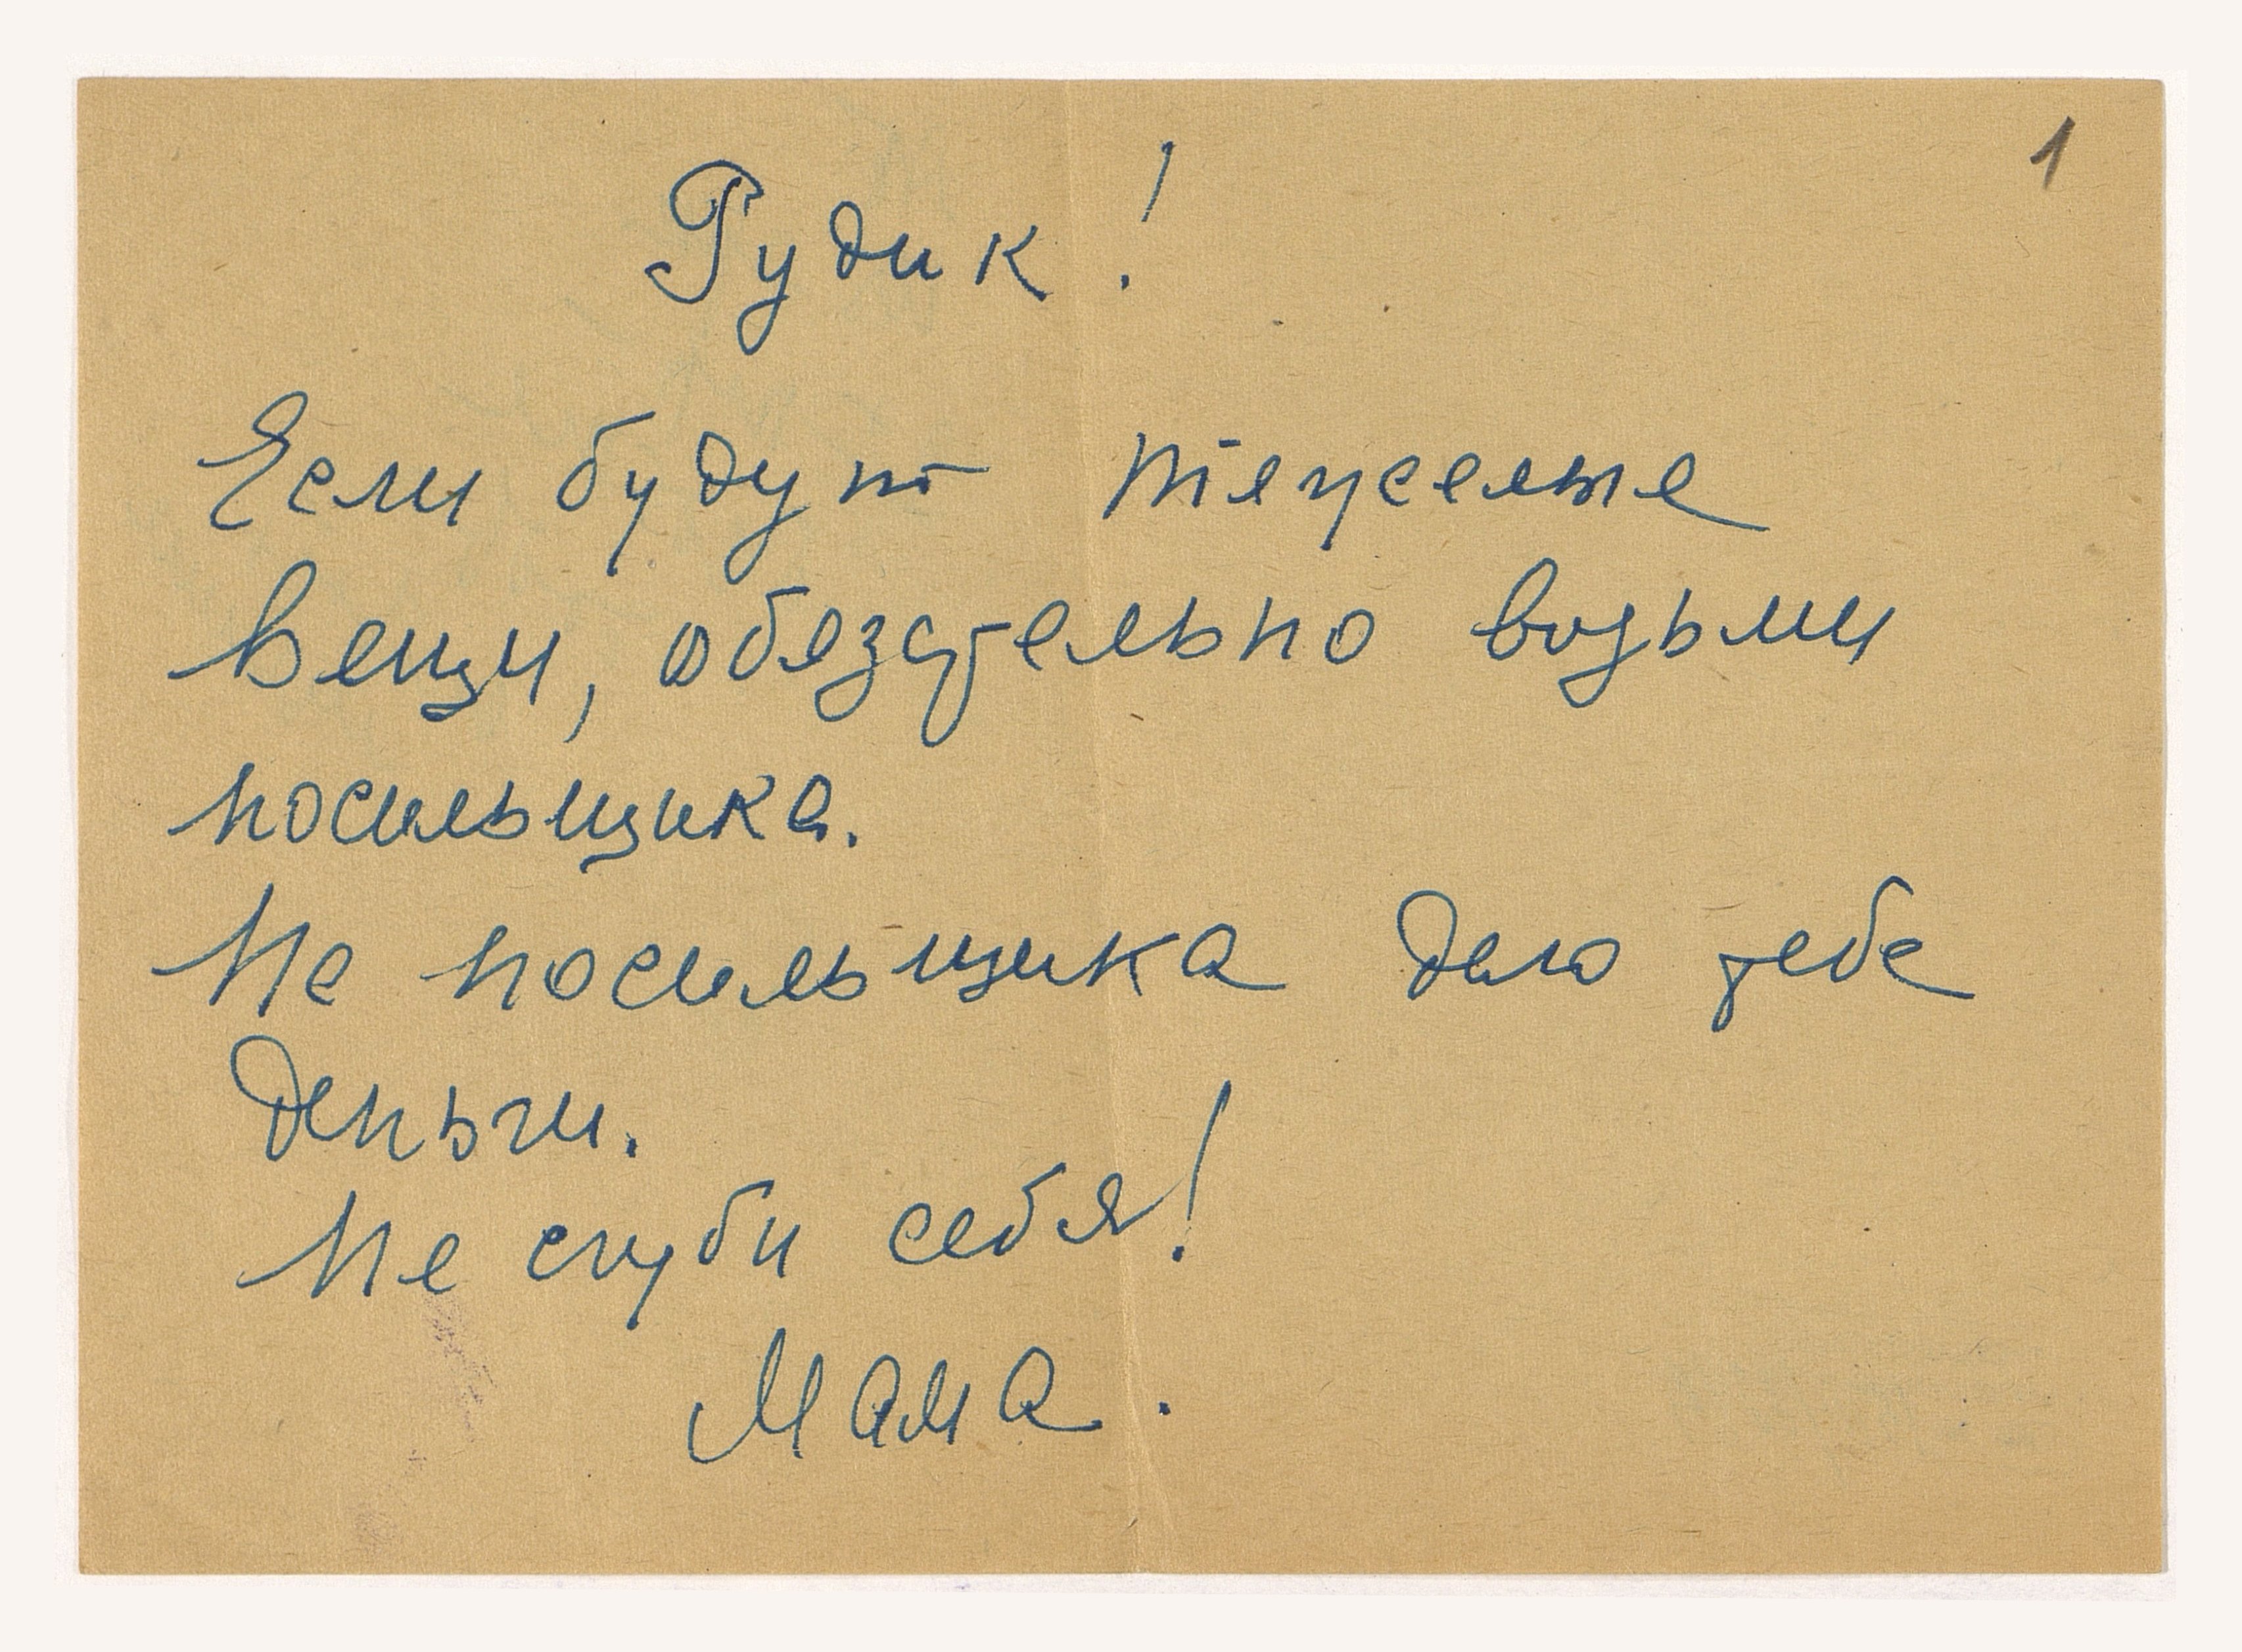 1
Рудик!
Если будут тяжелые
вещи, обязательно возьми
носильщика.
На носильщика даю тебе
деньги.
Не сгуби себя!
Мама.